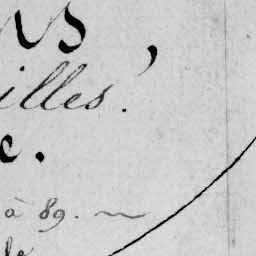 ns,
illes.
e.
à 89.
de